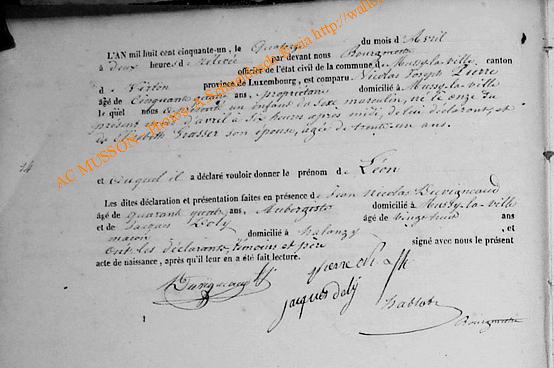 L'AN mil huit cent cinquante-un, le Quatorze du mois d'Avril
à deux heures de relevée par devant nous Bourgmestre
officier de l'état civil de la commune de Mussy-la-ville, canton
d Virton province de Luxembourg, est comparu Nicolas Joseph Pierre
âgé de Cinquante ans, propriétaire domicilié à Mussy-la-ville
le quel nous a présenté un enfant de sexe masculin, né le onze du
présent mois d'avril à six heures après midi, de lui déclarant, et
de Elisabeth Grasser son épouse, agée de trente un ans.
14
et auquel il a déclaré vouloir donner le prénom de Léon
Les dites déclaration et présentation faites en présence de Jean Nicolas Duvigneaud
âgé de quarante quatre ans, Aubergiste domicilié à Mussy-la-ville
et de Jacques Doly âgé de vingt huit ans
maçon domicilié à halanzy, et
Ont les déclarants, témoins et père signé avec nous le présent
acte de naissance, après qu'il leur en a été fait lecture.
Duvigneaud
pierre
jacques doly
Bourgmestre
AC MUSSON - Photog A.S.
via http://